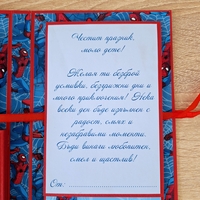 Честит празник,
мило дете!
Желая ти безброй
усмивки, безгрижни дни и
много приключения! Нека
всеки ден бъде изпълнен с
радост, смях и
незабравими моменти.
Бъди винаги любопитен,
смел и щастлив!
От: